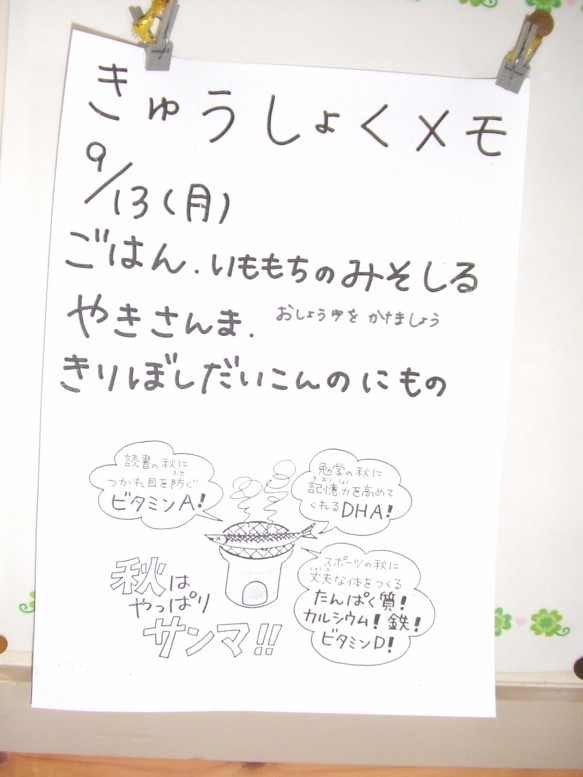 きゅうしょくメモ
9/13(月)
ごはん.いももちのみそしる
やきさんま. おしょうゆを かけましょう
きりぼしだいこんのにもの
読書の秋に
つかれ目を防ぐ
ふせ
ビタミンA!
勉学の秋に
きおくりょく
記憶力を高めて
くれるDHA!
スポーツの秋に
じょうぶ
丈夫な体をつくる
たんぱく質!
カルシウム!鉄!
ビタミンD!
秋は
やっぱり
サンマ!!